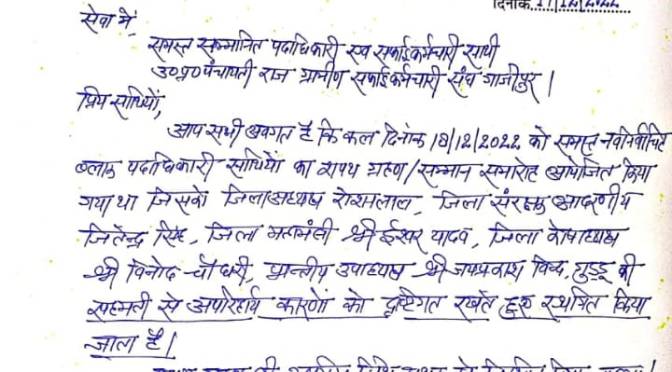 दिनांक..17/12/2022
सेवा में,
समस्त सम्मानित पदाधिकारी एवं सफाईकर्मचारी साथी
उ०प्र० पंचायती राज ग्रामीण सफाई कर्मचारी संघ गाजीपुर।
प्रिय साथियों,
आप सभी अवगत है कि कल दिनांक 18/12/2022 को समस्त नवनिर्वाचित
ब्लाक पदाधिकारी साथियों का शपथ ग्रहण/सम्मान समारोह आयोजित किया
गया था जिसको जिलाअध्यक्ष रोशनलाल, जिला संरक्षक आदरणीय
जितेन्द्र सिंह, जिला महामंत्री श्री ईश्वर यादव, जिला कोषाध्यक्ष
श्री विनोद चौधरी, प्रान्तीय उपाध्यक्ष श्री जयप्रकाश गुड्डू की
सहमती से अपरिहार्य कारणों को दृष्टिगत रखते हुए स्थगित किया
जाता है।